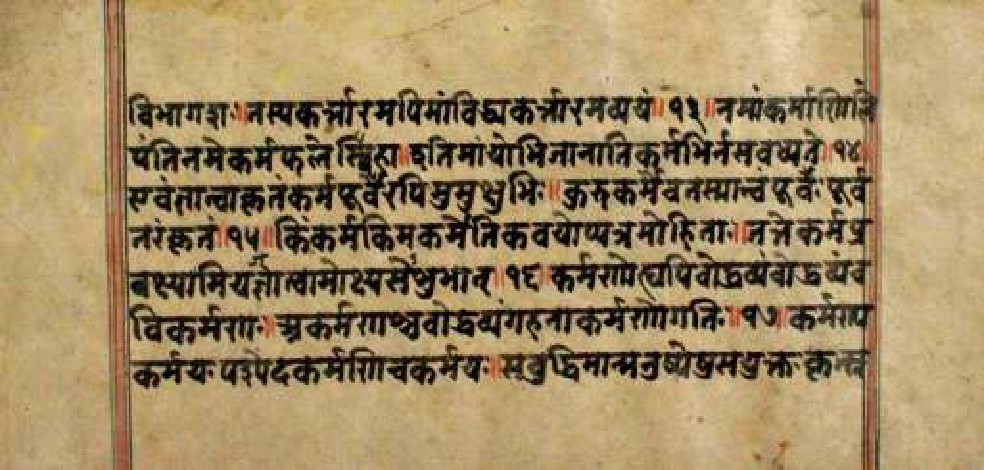 विभागशः ॥ तस्यकर्त्तारमपिमांविद्ध्यकर्त्तारमव्ययं ॥ १३ ॥ नमांकर्माणिलिं
पंतिनमेकर्मफलेस्पृहा ॥ इतिमांयोभिजानातिकर्मभिर्नसबध्यते ॥ १४
एवंज्ञात्वाकृतंकर्मपूर्वैरपिमुमुक्षुभिः ॥ कुरुकर्मैवतस्मात्त्वंपूर्वैः पूर्व
तरंकृतं ॥ १५ ॥ किंकर्मकिमकर्मेतिकवयोप्यत्रमोहिताः ॥ तत्तेकर्मप्र
वक्ष्यामियज्ज्ञात्वामोक्ष्यसेशुभात् ॥ १६ ॥ कर्मणोह्यपिबोद्धव्यंबोद्धव्यंच
विकर्मणः ॥ अकर्मणश्चबोद्धव्यंगहनाकर्मणोगतिः ॥ १७ ॥ कर्मण्य
कर्मयः पश्येदकर्मणिचकर्मयः ॥ सबुद्धिमान्मनुष्येषुसयुक्तः कृत्स्न